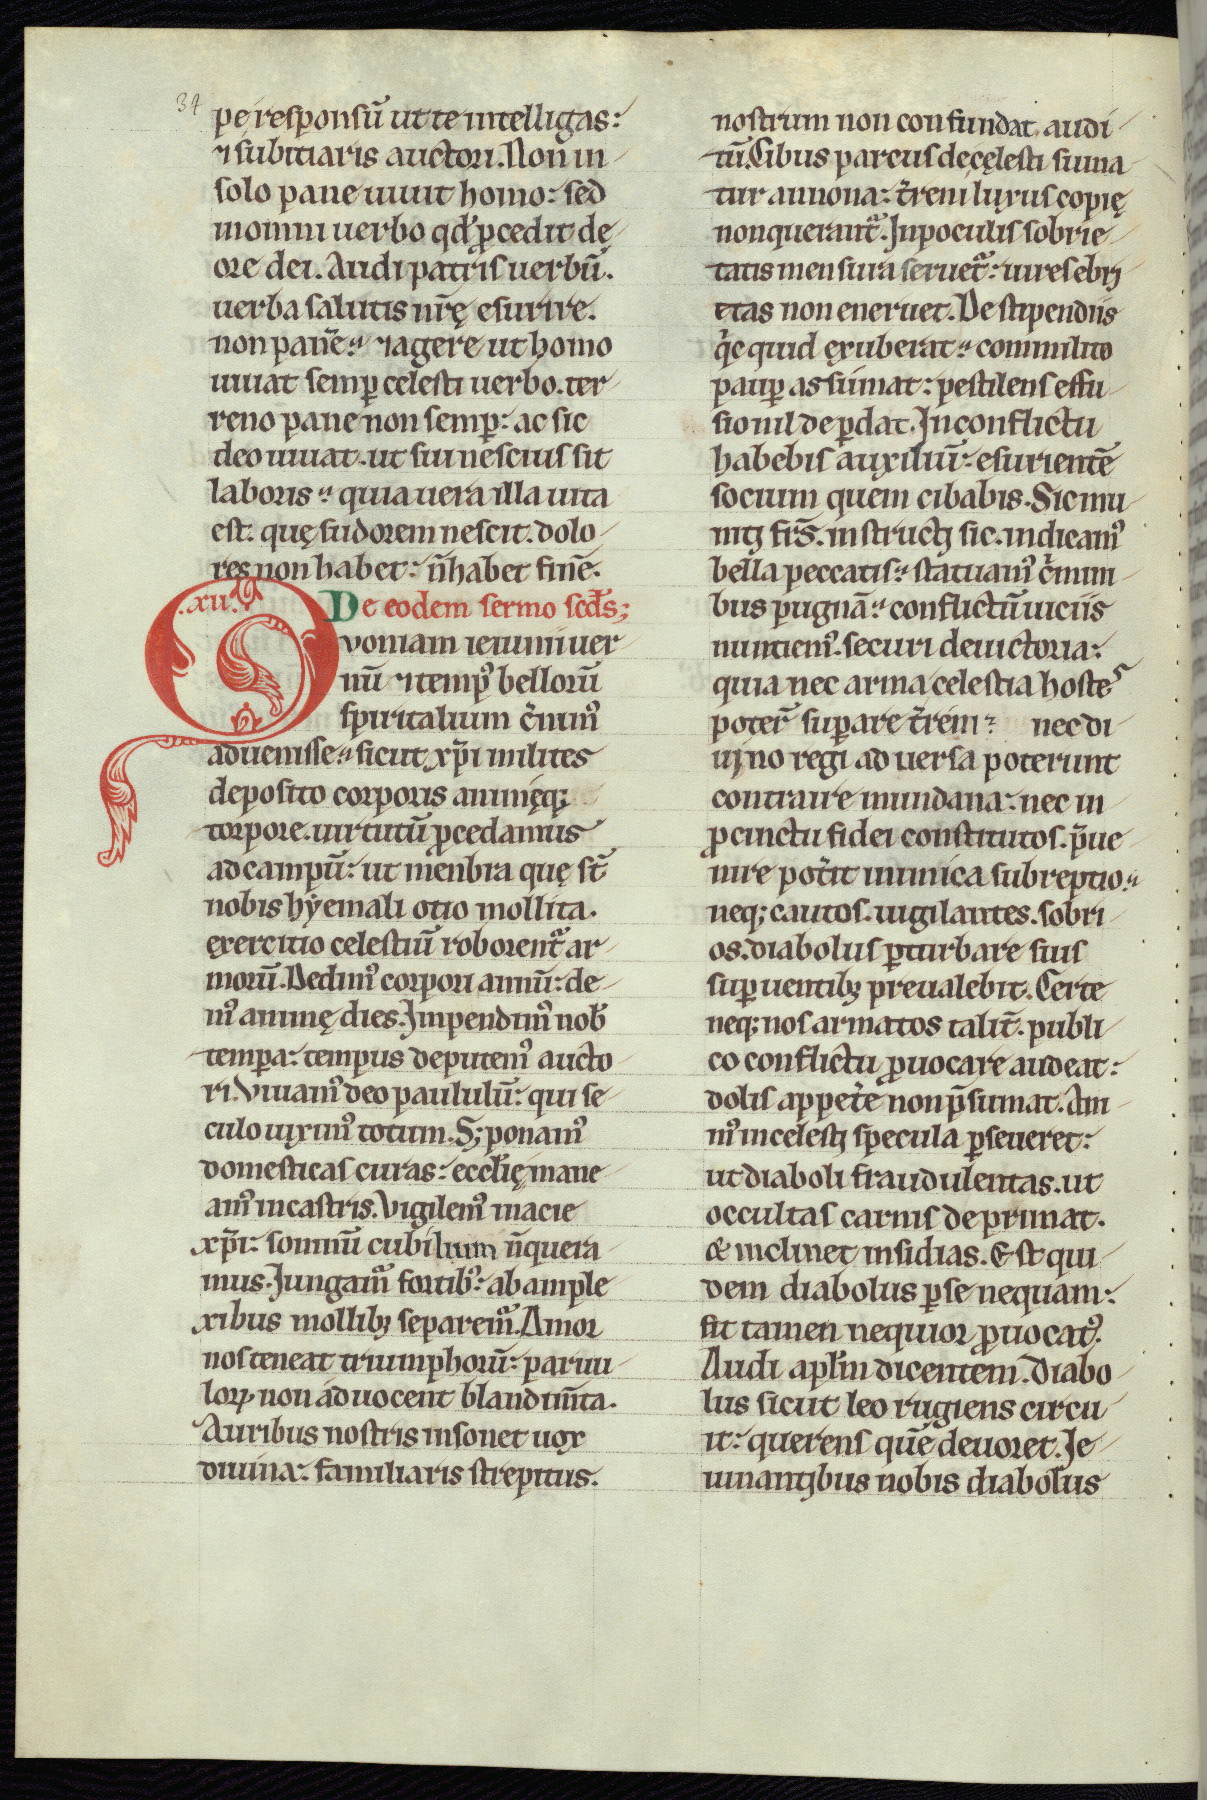 34
pe responsū ut te intelligas:
⁊ subitiaris auctori. Non in
solo pane uiuit homo: sed
in omni uerbo qđ ꝓcedit de
ore dei. Audi patris uerbū.
uerba salutis nr̄ę esurire.
non panē. ⁊ agere ut homo
uiuat semꝑ celesti uerbo. ter
reno pane non semꝑ: ac sic
deo uiuat. ut sui nescius sit
laboris. quia uera illa uita
est. quę sudorem nescit. dolo
res non habet: n̄ habet finē.
.xii. De eodem sermo scđs;
Quoniam ieiunii uer
nū ⁊ tempꝰ bellorū
spiritalium c̄minū
aduenisse. sicut xp̄i milites
deposito corporis animęq;
torpore. uirtutū ꝓcedamus
ad campū: ut menbra quę st̄
nobis hyemali otio mollita.
exercitio celestiū roborent᷑ ar
morū. Dedimꝰ corpori annū: de
mꝰ animę dies. Impendimꝰ nob̄
tempora: tempus deputemꝰ aucto
ri. Viuamꝰ deo paululū: qui se
culo uiximꝰ totum. S; ponamꝰ
domesticas curas: eccl̄ię mane
amꝰ in castris. Vigilemꝰ in acie
xp̄i: somnū cubilium n̄ quera
mus. Iungam᷑ fortibꝰ: ab ample
xibus mollibꝫ separem᷑. Amor
nos teneat triumphorū: paruu
loꝝ non aduocent blandim̄ta.
Auribus nostris insonet uox
diuina: familiaris strepitus.
nostrum non confundat audi
tū. Cibus parcus de cęlesti suma
tur annona: t̄reni luxus copię
non querant᷑. In poculis sobrie
tatis mensura seruet᷑: uires ebri
etas non eneruet. De stipendiis
qͥcquid exuberat. commilito
pauꝑ assumat: pestilens effu
sio nil deꝑdat. In conflictu
habebis auxiliū: esurientē
socium quem cibabis. Sic mu
niti fr̄s. instructi sic. indicamꝰ
bella peccatis. statuamꝰ c̄mini
bus pugnā. conflictū uiciis
nuntiemꝰ. securi de uictoria:
quia nec arma celestia hostes
poter̄ suꝑare t̄reni: nec di
uino regi aduersa poterunt
contraire mundana: nec in
ꝓcinctu fidei constitutos. p̄ue
nire pot̄it inimica subreptio.
neq; cautos. uigilantes. sobri
os. diabolus ꝑturbare suis
suꝑuentibꝫ preualebit. Certe
neq; nos armatos talit̄. publi
co conflictu ꝓuocare audeat:
dolis appet̄e non p̄sumat. Ani
mꝰ in celesti specula ꝑseueret:
ut diaboli fraudulentas. ut
occultas carnis deprimat.
& inclinet insidias. Est qui
dem diabolus ꝑ se nequam:
fit tamen nequior ꝓuocatꝰ.
Audi apl̄m dicentem. Diabo
lus sicut leo rugiens circu
it: querens quē deuoret. Ie
iunantibus nobis diabolus